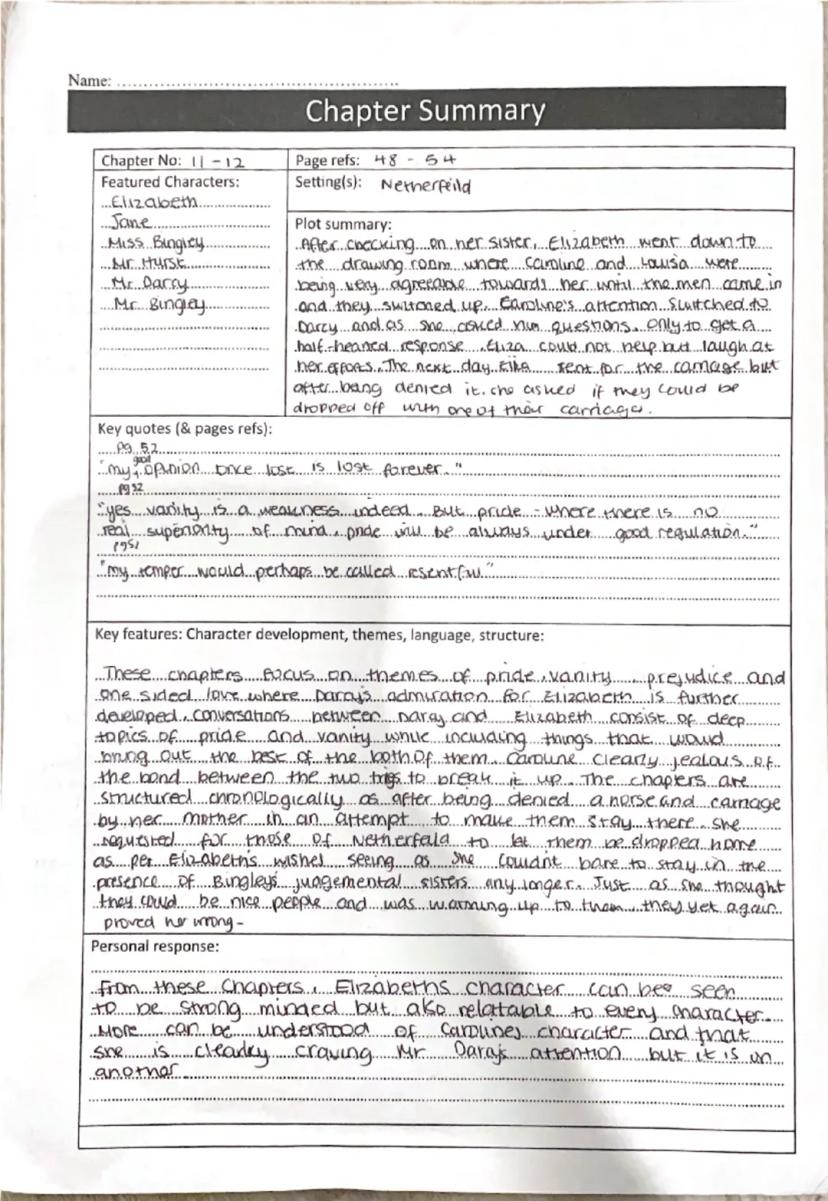 Name:
Chapter Summary
Chapter No: 11-12
Page refs: 48 - 54
Featured Characters:
Elizabeth
Jane
Miss Bingley
Mr Hurst
Mr Darcy
Mr Bingley
Setting(s): Netherfeild
Plot summary:
After checking on her sister, Elizabeth went down to
the drawing room where Caroline and Louisa were
being very agreeable towards her until the men came in
and they switched up. Caroline's attention switched to
Darcy and as she asked him questions, only to get a
half-hearted response. Eliza could not help but laugh at
her efforts. The next day, Eliza sent for the carriage but
after being denied it, she asked if they could be
dropped off with one of their carriages.
Key quotes (& pages refs):
Pg 52
"my good opinion once lost is lost forever."
pg 52
"yes vanity is a weakness indeed. But pride - where there is no
real superiority of mind, pride will be always under good regulation."
pg 51
"my temper would perhaps be called resentful."
Key features: Character development, themes, language, structure:
These chapters focus on themes of pride, vanity, prejudice and
one sided love where Darcy's admiration for Elizabeth is further
developed. Conversations between Darcy and Elizabeth consist of deep
topics of pride and vanity while including things that would
bring out the best of the both of them. Caroline clearly jealous of
the bond between the two tries to break it up. The chapters are
structured chronologically as after being denied a horse and carriage
by her mother in an attempt to make them stay there, she
requested for those of Netherfeild to let them be dropped home
as per Elizabeths wishes seeing as she couldnt bare to stay in the
presence of Bingley's judgemental sisters any longer. Just as she thought
they could be nice people and was warming up to them, they yet again
proved her wrong-
Personal response:
From these Chapters, Elizabeths character can be seen
to be strong minded but also relatable to every character.
More can be understood of Carolines character and that
she is clearly craving Mr Darcy's attention but it is on
another